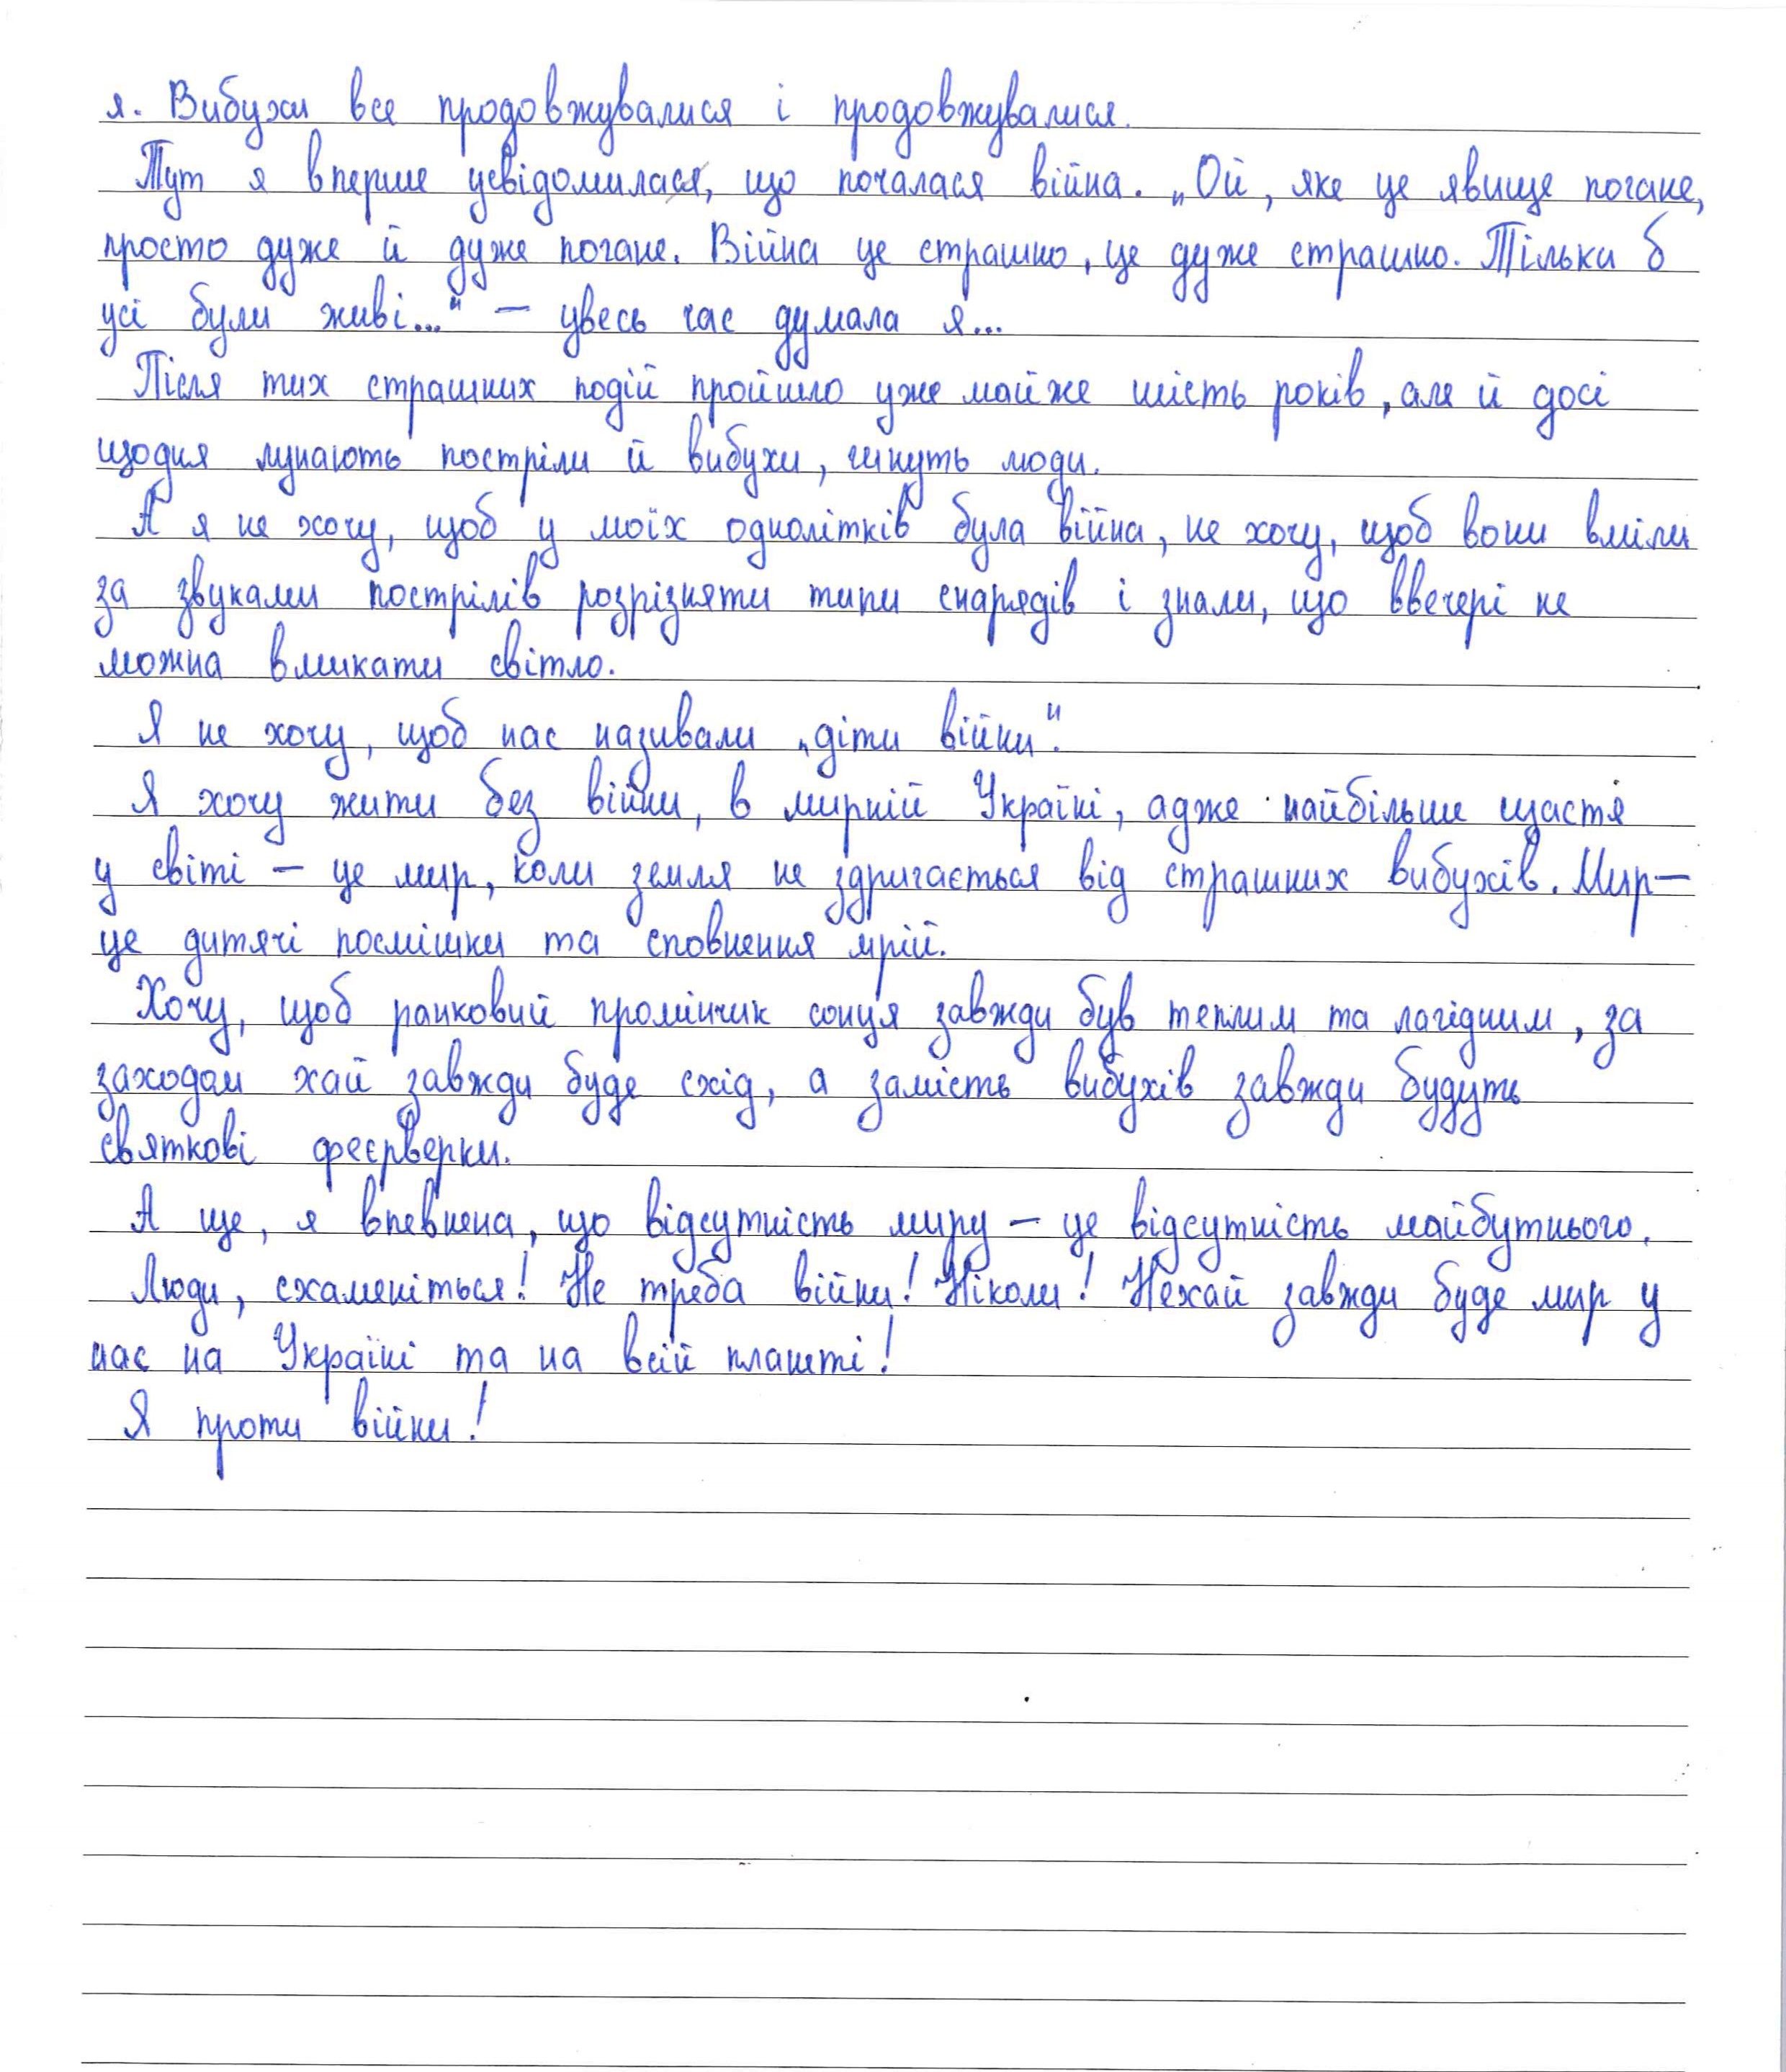 я. Вибухи все продовжувалися і продовжувалися.
Тут я вперше усвідомилася, що почалася війна. „Ой, яке це явище погане,
просто дуже й дуже погане. Війна це страшно, це дуже страшно. Тільки б
усі були живі..." — увесь час думала я...
Після тих страшних подій пройшло уже майже шість років, але й досі
щодня лунають постріли й вибухи, гинуть люди.
А я не хочу, щоб у моїх однолітків була війна, не хочу, щоб вони вміли
за звуками пострілів розрізняти типи снарядів і знали, що ввечері не
можна вмикати світло.
Я не хочу, щоб нас називали „діти війни".
Я хочу жити без війни, в мирній Україні, адже найбільше щастя
у світі — це мир, коли земля не здригається від страшних вибухів. Мир —
це дитячі посмішки та сповнення мрій.
Хочу, щоб ранковий промінчик сонця завжди був теплим та лагідним, за
заходом хай завжди буде схід, а замість вибухів завжди будуть
святкові феєрверки.
А ще, я впевнена, що відсутність миру — це відсутність майбутнього.
Люди, схаменіться! Не треба війни! Ніколи! Нехай завжди буде мир у
нас на Україні та на всій планеті!
Я проти війни!